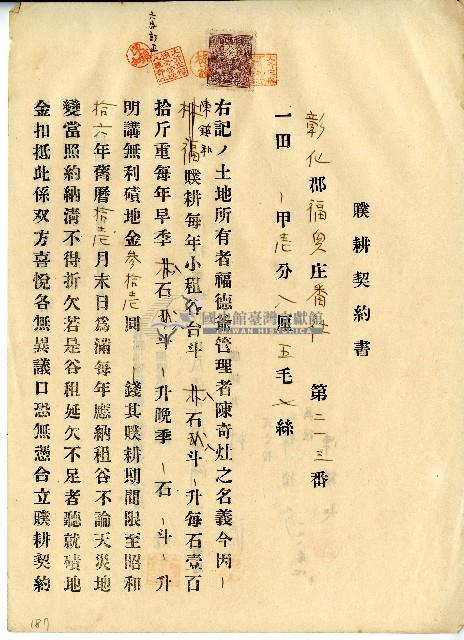 贌耕契約書
彰化郡福興庄番社 第二一三番
一田 一甲壱分八厘五毛 絲
右記ノ土地所有者福德爺管理者陳奇灶之名義今因
陳鎰
福贌耕每年小租谷台斗 石 斗 升每石壹百
拾斤重每年早季 石 斗 升晚季 石 斗 升
明講無利磧地金參拾壱圓 錢其贌耕期間限至昭和
拾六年舊曆拾壱月末日為滿每年應納租谷不論天災地
變當照約納清不得折欠若是谷租延欠不足者聽就磧地
金扣抵此係双方喜悅各無異議口恐無憑合立贌耕契約
國史館臺灣文獻館
TAIWAN HISTORICA
187